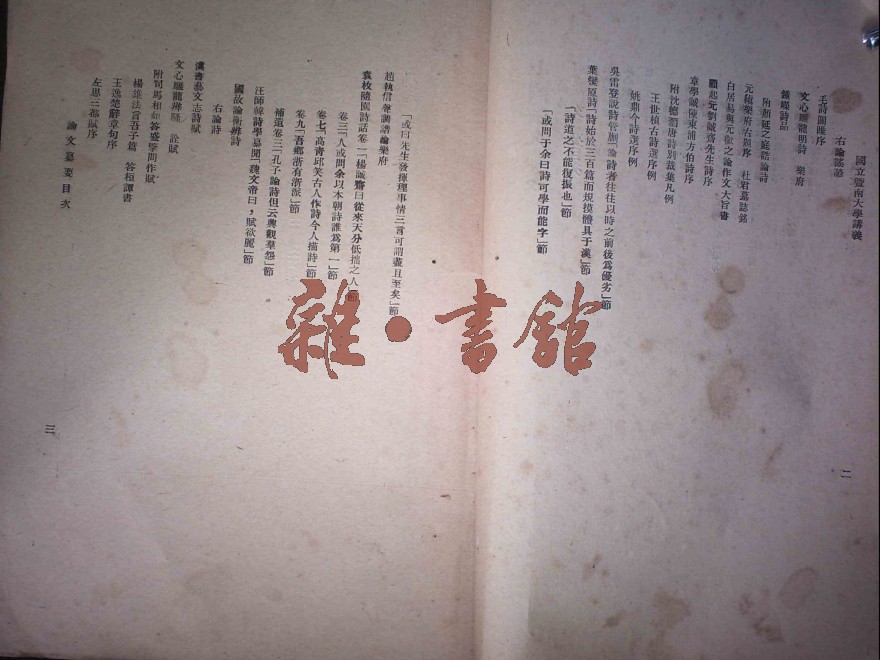 國立暨南大學講義
二
右論諧讔
毛詩關雎序
文心雕龍明詩 樂府
鍾嶸詩品
附顏延之庭誥論詩
元稹樂府古題序 杜君墓誌銘
白居易與元微之論作文大旨書
顧起元劉誠齋先生詩序
章學誠陳東浦方伯詩序
附沈德潛唐詩別裁集凡例
王世禎古詩選序例
姚鼐今詩選序例
吳雷登說詩管蒯「論詩者往往以時之前後為優劣」節
葉燮原詩「詩始於三百篇而規模體具于漢」節
「詩道之不能復振也」節
「或問于余曰詩可學而能乎」節
「或曰先生發揮理事情三言可謂盡且至矣」節
趙執信聲調譜論樂府
袁枚隨園詩話卷二「楊誠齋曰從來天分低拙之人」節
卷三「人或問余以本朝詩誰為第一」節
卷七「高青邱笑古人作詩今人描詩」節
卷九「吾鄉浙有浙派」節
補遺卷三「孔子論詩但云興觀羣怨」節
汪師韓詩學纂聞「魏文帝曰，賦欲麗」節
國故論衡辨詩
右論詩
漢書藝文志詩賦
文心雕龍辨騷 詮賦
附司馬相如答盛擥問作賦
楊雄法言吾子篇 答桓譚書
王逸楚辭章句序
左思三都賦序
論文纂要目次
三
雜·書館